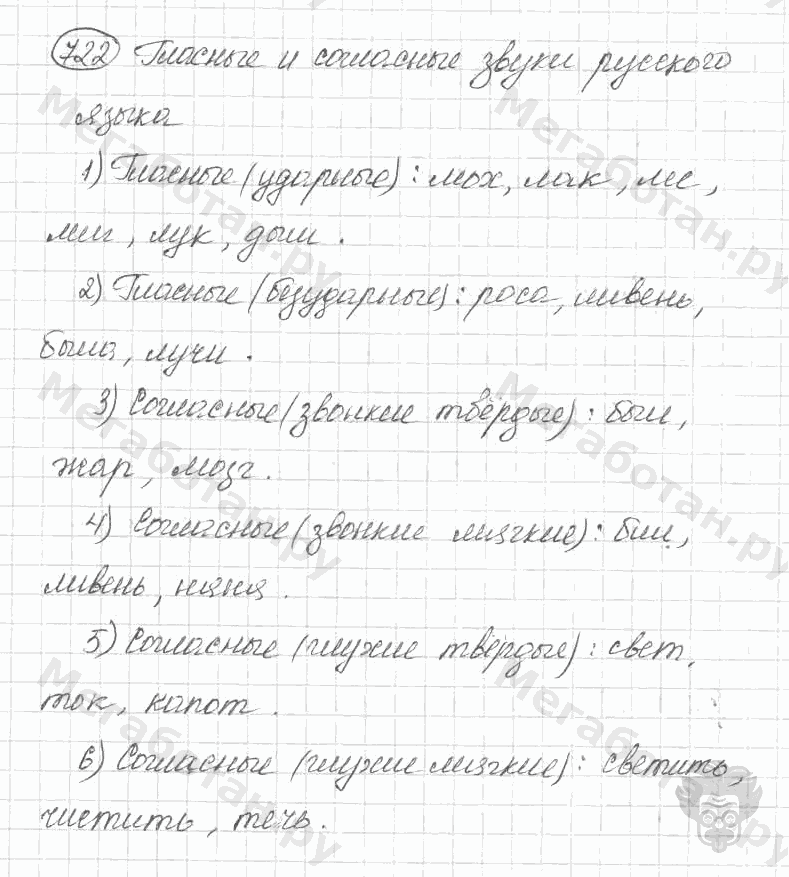 722 Гласные и согласные звуки русского
языка
1) Гласные (ударные): мох, лак, лес,
миг, лук, дыш.
2) Гласные (безударные): роса, ливень,
была, лучи.
3) Согласные (звонкие твёрдые): был,
жар, мозг.
4) Согласные (звонкие мягкие): бил,
ливень, няня.
5) Согласные (глухие твёрдые): свет,
ток, капот.
6) Согласные (глухие мягкие): светить,
чистить, течь.
Мегаботан.ру
Мегаботан.ру
Мегаботан.ру
Мегаботан.ру
Мегаботан.ру
Мегаботан.ру